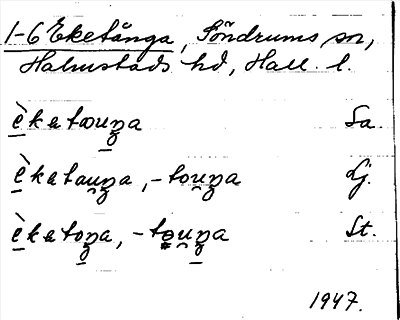 1-6 Eketånga, Söndrums sn,
Halmstads hd, Hall. l.
èkatauŋa Sa.
èkatauŋa, -touŋa Lj.
èkatoŋa, -touŋa St.
1947.